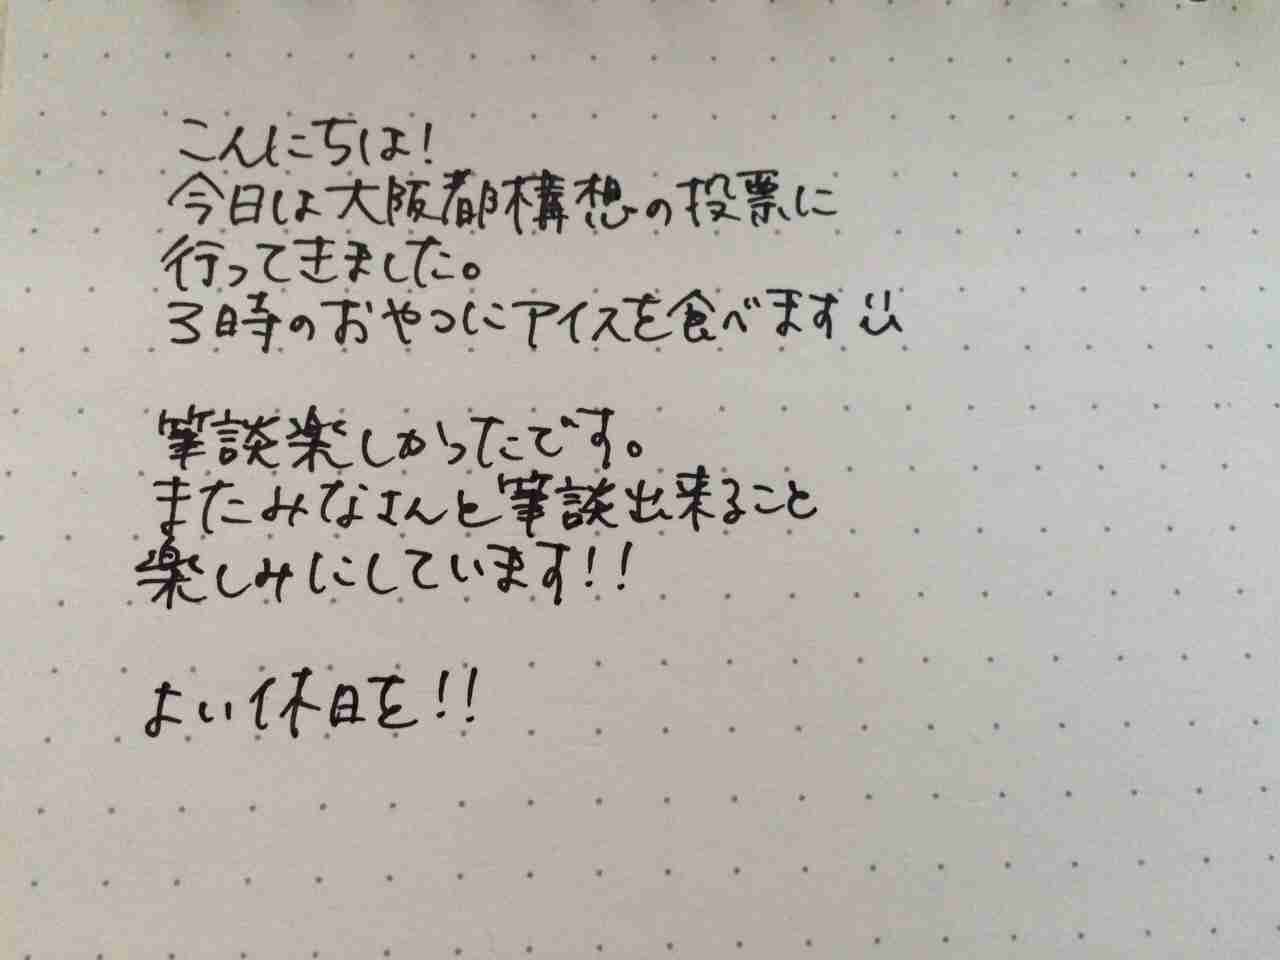 こんにちは!
今日は大阪都構想の投票に
行ってきました。
3時のおやつにアイスを食べます
筆談楽しかったです。
またみなさんと筆談出来ること
楽しみにしています!!
よい休日を!!